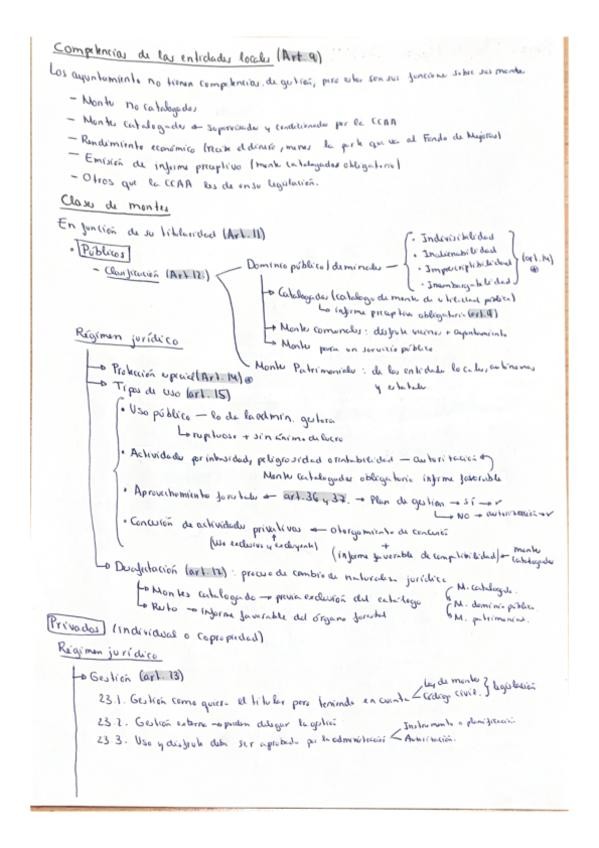 Competencias de las entidades locales (Art. 9)
Los ayuntamiento no tienen competencias de gestión, pero estas son sus funciones sobre sus montes
- Monte no catalogados
- Montes catalogados ← supervisados y condicionados por la CCAA
- Rendimiento económico (recibe el dinero, menos la parte que va al Fondo de Mejoras)
- Emisión de informe preceptivo (monte catalogados obligatorio)
- Otros que la CCAA les de en su legislación.
Clases de montes
En función de su titularidad (Art. 11)
• Públicos
- Clasificación (Art. 12)
Dominio público / demaniales
• Indivisibilidad
• Inalienabilidad
• Imprescriptibilidad
• Inembargabilidad
(art. 14)
→ Catalogados (catalogo de monte de utilidad pública)
↳ informe preceptivo obligatorio (art. 9)
→ Montes comunales: disfrute vecinos + ayuntamiento
→ Monte para un servicio público
Monte Patrimoniales: de las entidade locales, autónomas
y estatales
Régimen jurídico
→ Protección especial (Art. 14)
→ Tipos de uso (art. 15)
• Uso público — lo de la admin. gestora
↳ respetuoso + sin ánimo de lucro
• Actividades por intensidad, peligrosidad o rentabilidad — autorización
Monte catalogados obligatorio informe favorable
• Aprovechamiento forestales ← art. 36 y 37. → Plan de gestión → SÍ → ✓
↳ NO → autorización → ✓
• Concesión de actividades privativas ← otorgamiento de concesión
(Uso exclusivo y excluyente)
+
(informe favorable de compatibilidad) ← monte catalogados
↳ Desafectación (art. 17): proceso de cambio de naturaleza jurídica
→ Montes catalogado → previa exclusión del catálogo
→ Resto → informe favorable del órgano forestal
M. catalogado.
M. dominio público
M. patrimonial.
Privados (individual o copropiedad)
Régimen jurídico
→ Gestión (art. 13)
23.1. Gestión como quiera el titular pero teniendo en cuenta
Ley de montes
Código civil.
} legislación
23.2. Gestión externa → pueden delegar la gestión
23.3. Uso y disfrute debe ser aprobado por la administración
Instrumento o planificación
Autorización.